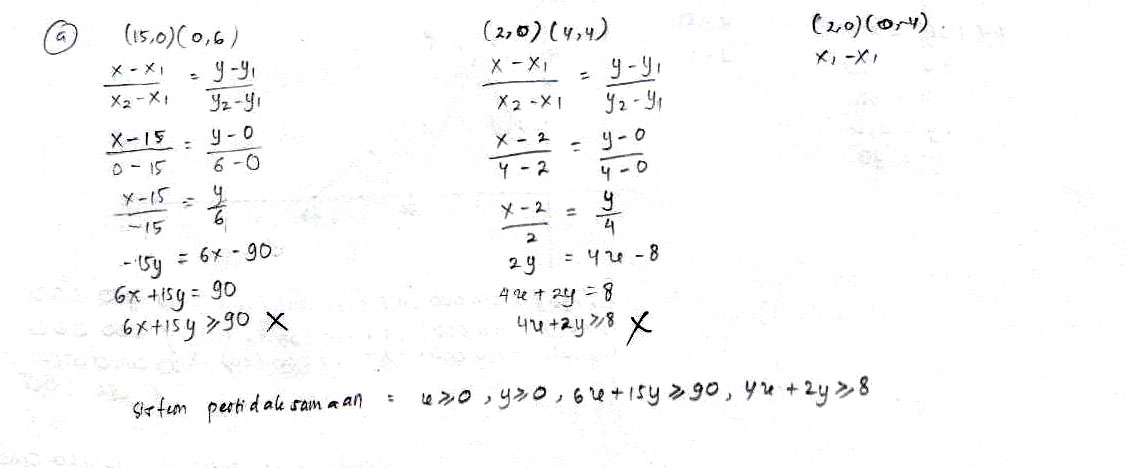 (a) (15,0)(0,6)
x - x₁ / x₂ - x₁ = y - y₁ / y₂ - y₁
x - 15 / 0 - 15 = y - 0 / 6 - 0
x - 15 / -15 = y / 6
-15y = 6x - 90
6x + 15y = 90
6x + 15y ≥ 90 X
(2,0)(4,4)
x - x₁ / x₂ - x₁ = y - y₁ / y₂ - y₁
x - 2 / 4 - 2 = y - 0 / 4 - 0
x - 2 / 2 = y / 4
2y = 4x - 8
4x + 2y = 8
4x + 2y ≥ 8 X
(2,0)(0,-4)
x₁ - x₁
sistem pertidaksamaan = x ≥ 0, y ≥ 0, 6x + 15y ≥ 90, 4x + 2y ≥ 8